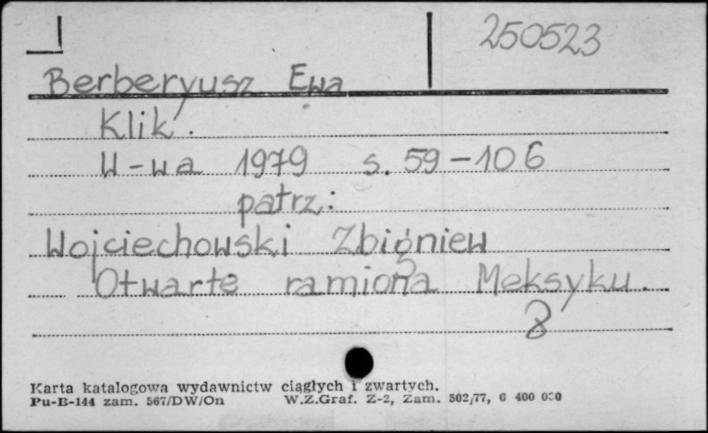 250523
Berberyusz Ewa
Klik.
W-wa 1979 s. 59-106
patrz:
Wojciechowski Zbigniew
Otwarte ramiona Meksyku.
8
Karta katalogowa wydawnictw ciągłych i zwartych.
Pu-B-144 zam. 567/DW/On W.Z.Graf. Z-2, Zam. 502/77, 6 400 000